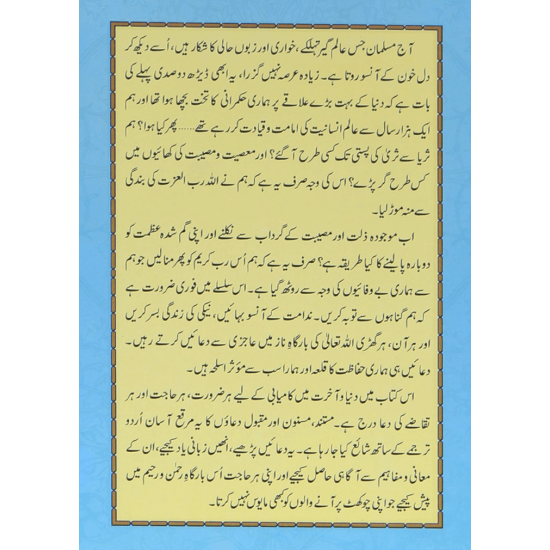 آج مسلمان جس عالم گیر تہلکے، خواری اور زبوں حالی کا شکار ہیں، اُسے دیکھ کر
دل خون کے آنسو روتا ہے۔ زیادہ عرصہ نہیں گزرا، یہ ابھی ڈیڑھ دو صدی پہلے کی
بات ہے کہ دنیا کے بہت بڑے علاقے پر ہماری حکمرانی کا تخت بچھا ہوا تھا اور ہم
ایک ہزار سال سے عالم انسانیت کی امامت و قیادت کر رہے تھے...... پھر کیا ہوا؟ ہم
ثریا سے ثریٰ کی پستی تک کسی طرح آ گئے؟ اور معصیت و مصیبت کی کھائیوں میں
کس طرح گر پڑے؟ اس کی وجہ صرف یہ ہے کہ ہم نے اللہ رب العزت کی بندگی
سے منہ موڑ لیا۔
اب موجودہ ذلت اور مصیبت کے گرداب سے نکلنے اور اپنی گم شدہ عظمت کو
دوبارہ پا لینے کا کیا طریقہ ہے؟ صرف یہ ہے کہ ہم اُس رب کریم کو پھر منا لیں جو ہم
سے ہماری بے وفائیوں کی وجہ سے روٹھ گیا ہے۔ اس سلسلے میں فوری ضرورت ہے
کہ ہم گناہوں سے توبہ کریں۔ ندامت کے آنسو بہائیں، نیکی کی زندگی بسر کریں
اور ہر آن، ہر گھڑی اللہ تعالیٰ کی بارگاہِ ناز میں عاجزی سے دعائیں کرتے رہیں۔
دعائیں ہی ہماری حفاظت کا قلعہ اور ہمارا سب سے مؤثر اسلحہ ہیں۔
اس کتاب میں دنیا و آخرت میں کامیابی کے لیے ہر ضرورت، ہر حاجت اور ہر
تقاضے کی دعا درج ہے۔ مستند، مسنون اور مقبول دعاؤں کا یہ مرقع آسان اُردو
ترجمے کے ساتھ شائع کیا جا رہا ہے۔ یہ دعائیں پڑھیے، انھیں زبانی یاد کیجیے، ان کے
معانی و مفاہیم سے آگاہی حاصل کیجیے اور اپنی ہر حاجت اُس بارگاہِ رحمٰن و رحیم میں
پیش کیجیے جو اپنی چوکھٹ پر آنے والوں کو کبھی مایوس نہیں کرتا۔